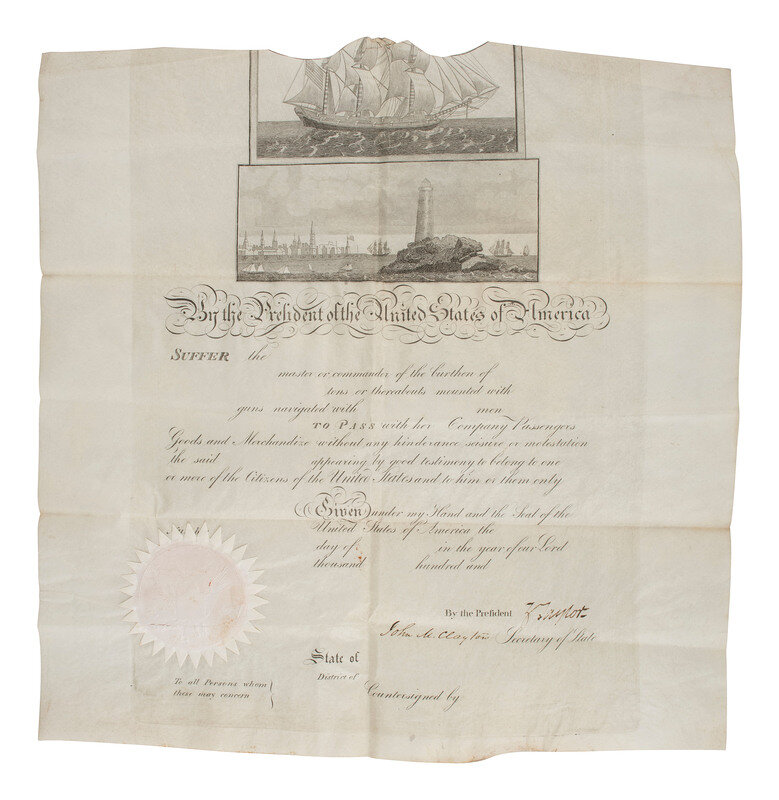 By the President of the United States of America
SUFFER the
master or commander of the burthen of
tons or thereabouts mounted with
guns navigated with men
TO PASS with her Company Passengers
Goods and Merchandize without any hinderance seisure or molestation
the said appearing by good testimony to belong to one
or more of the Citizens of the United States and to him or them only
Given under my Hand and the Seal of the
United States of America the
day of in the year of our Lord
thousand hundred and
By the President Z Taylor
John M. Clayton Secretary of State
State of
District of
To all Persons whom
these may concern
Countersigned by